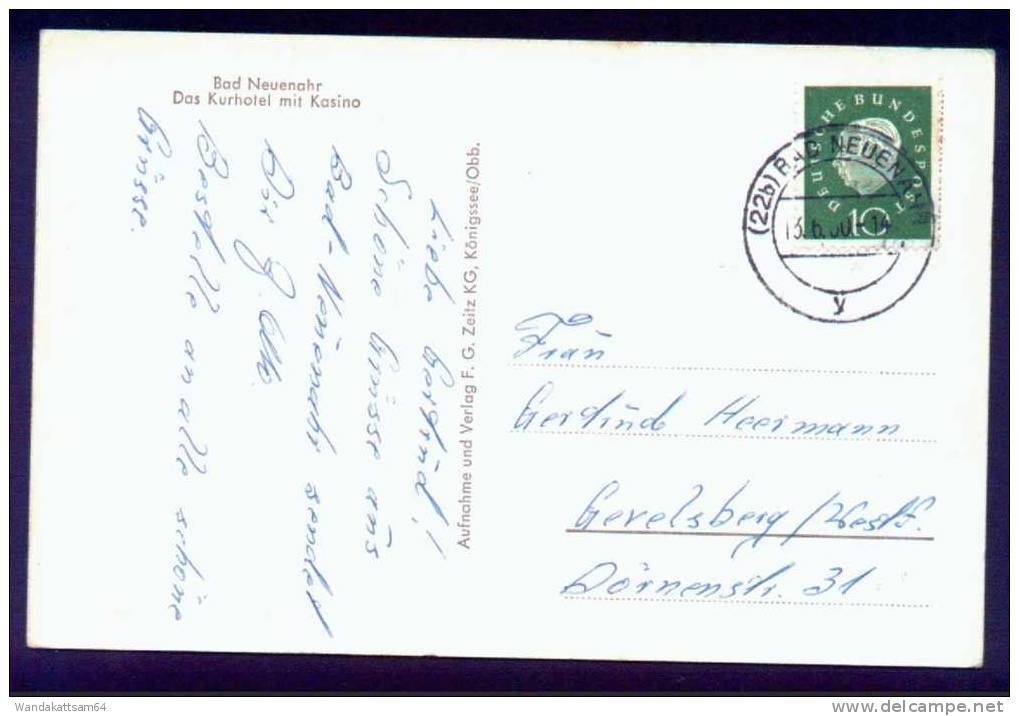 Bad Neuenahr
Das Kurhotel mit Kasino
Liebe Gertrud!
Schöne Grüsse aus
Bad-Neuenahr sendet
Dir
Bestelle an alle schöne
Grüsse.
Aufnahme und Verlag F. G. Zeitz KG, Königssee/Obb.
DEUTSCHE BUNDESPOST
10
(22b) BAD NEUENAHR
13.6.60-14
y
Frau
Gertrud Heermann
Gevelsberg/Westf.
Dörnenstr. 31
Wandakattsam64
www.delcampe.net